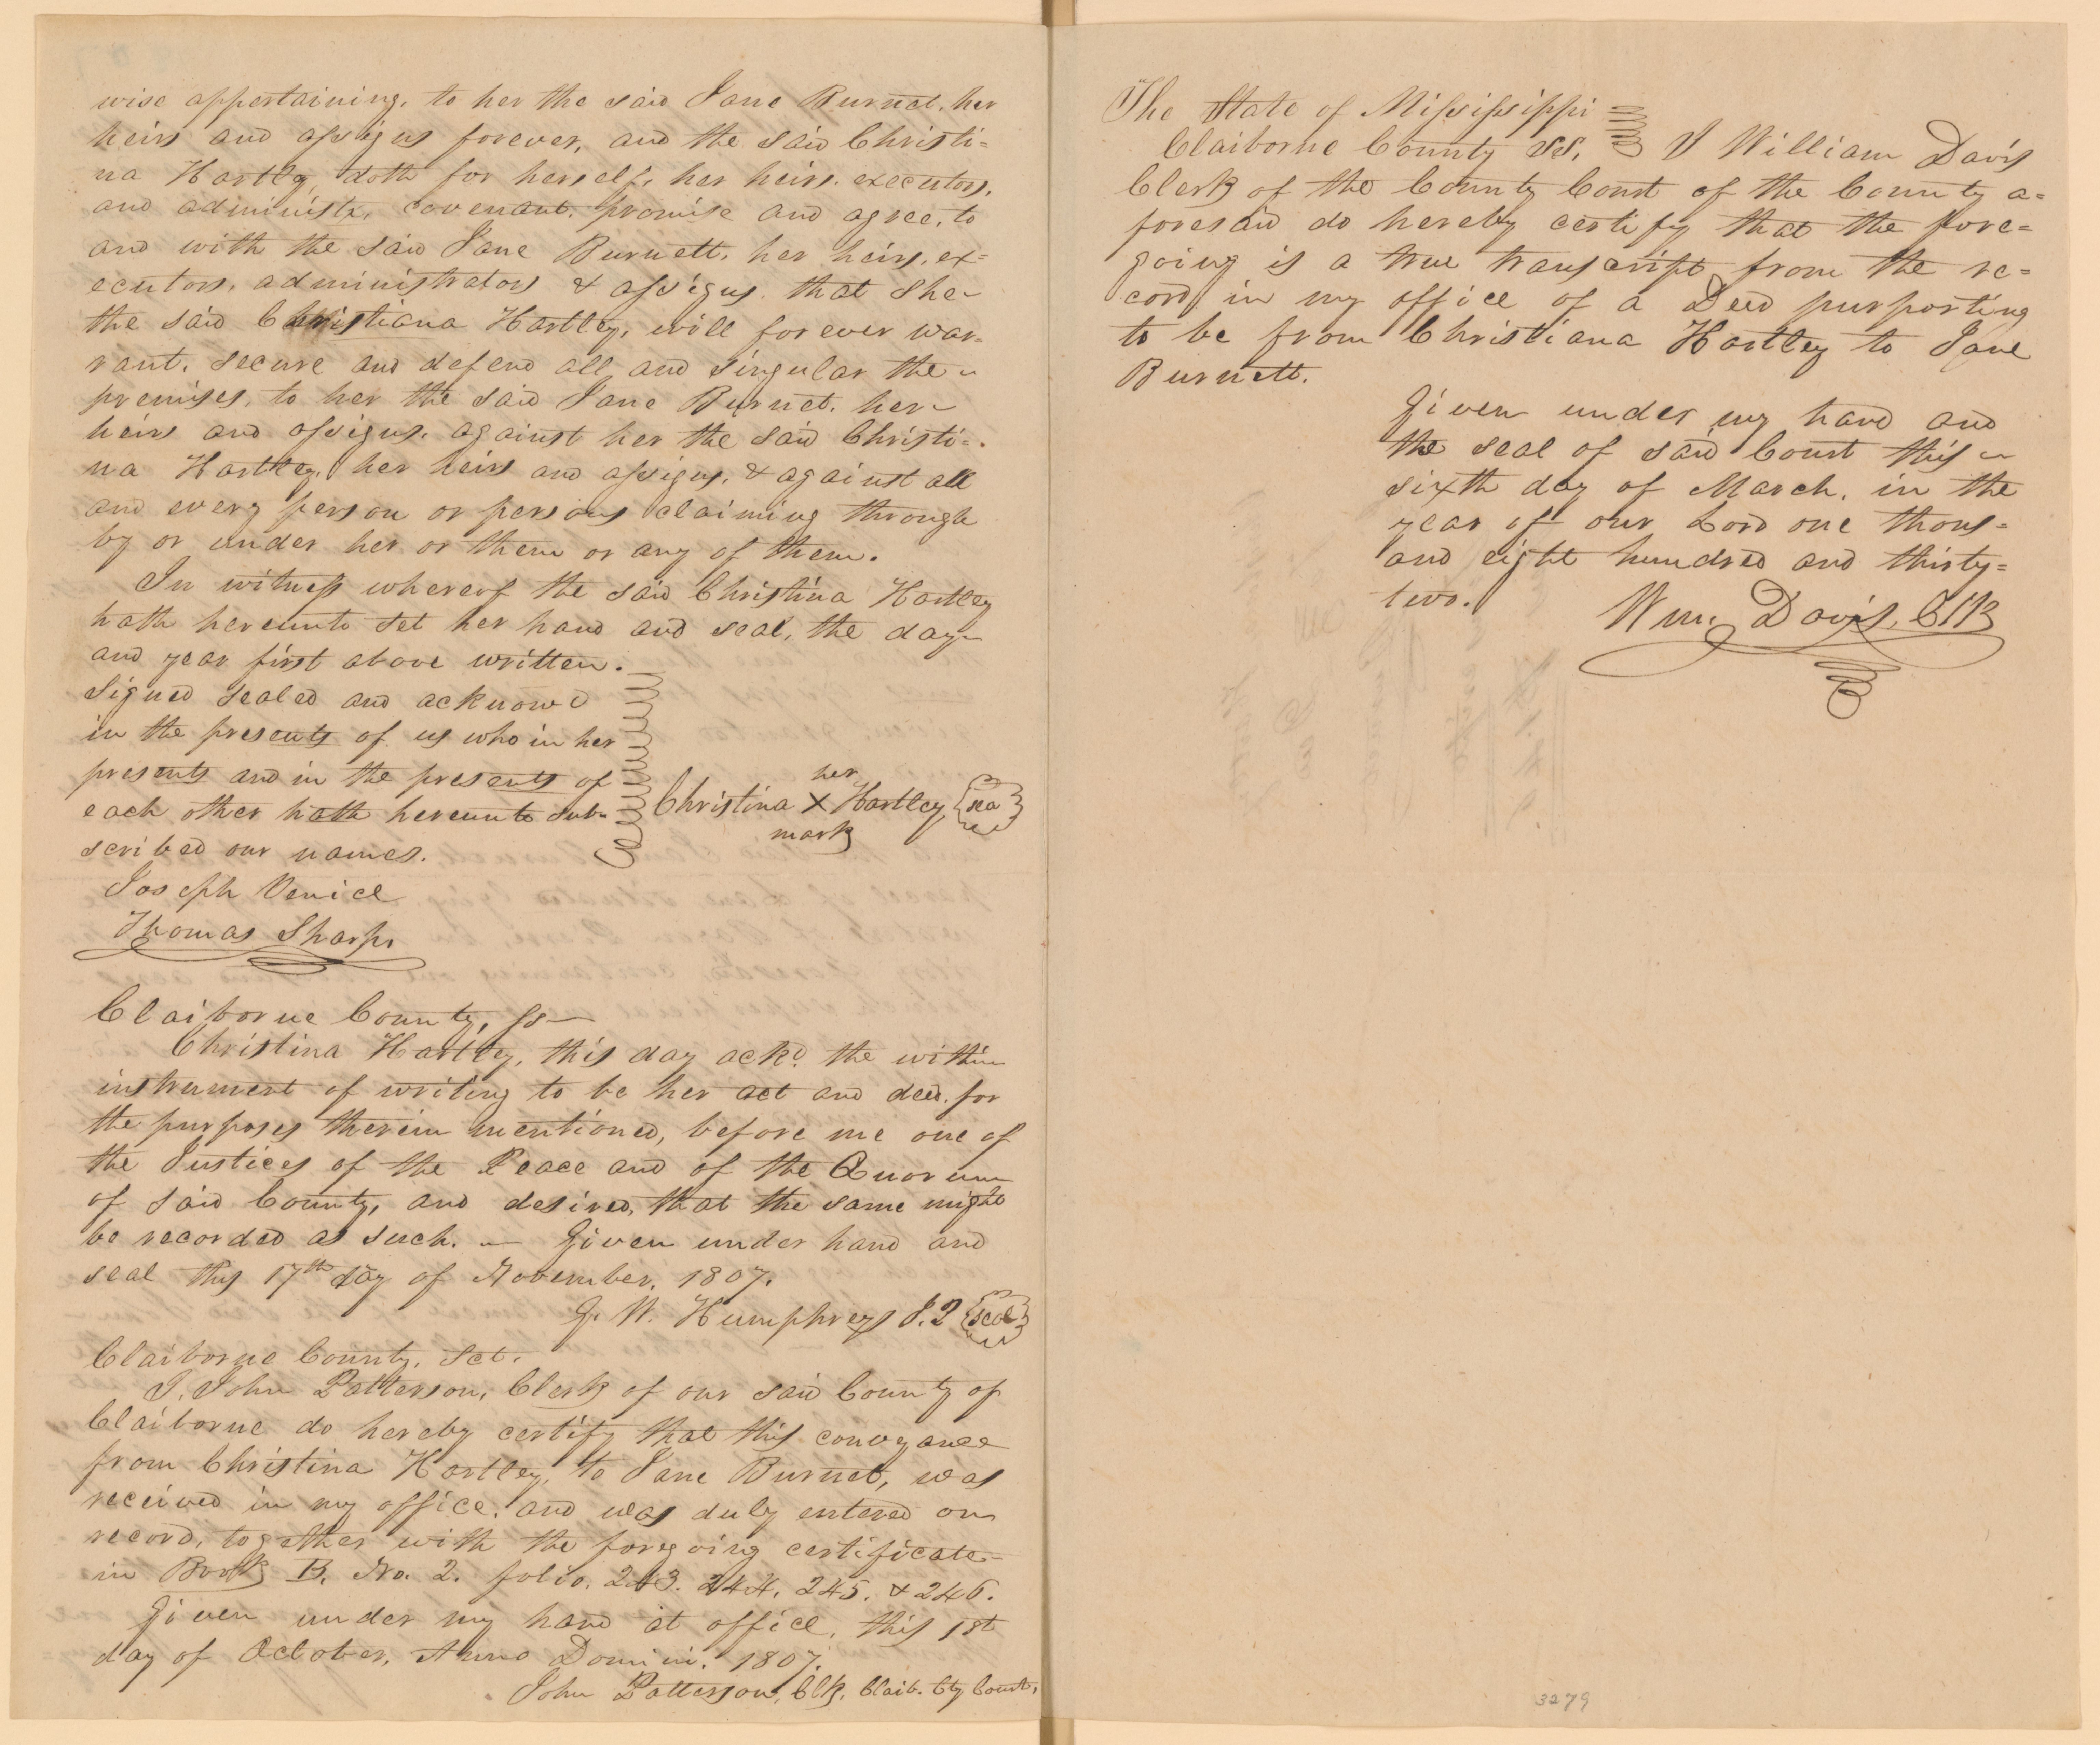 wise appertaining, to her the said Jane Burnet, her
heirs and assigns forever, and the said Christi=
na Hartley, doth for herself, her heirs, executors,
and administr, covenant, promise and agree, to
and with the said Jane Burnett, her heirs, ex=
ecutors, administrators & assigns, that she
the said Christiana Hartley, will forever war=
rant, secure and defend all and singular the
premises, to her the said Jane Burnet, her
heirs and assigns, against her the said Christi=
na Hartley, her heirs and assigns, & against all
and every person or persons claiming through
by or under her or them or any of them.
In witness whereof the said Christina Hartley
hath hereunto set her hand and seal, the day
and year first above written.
Signed sealed and acknowd
in the presents of us who in her
presents and in the presents of
each other hath hereunto sub=
scribed our names.
her
Christina X Hartley seal
mark
Joseph Venice
Thomas Sharp
Claiborne County, ss
Christina Hartley, this day ackd. the within
instrument of writing to be her act and deed, for
the purposes therein mentioned, before me one of
the Justices of the Peace and of the Quorum
of said County, and desired, that the same might
be recorded as such. Given under hand and
seal this 17th day of November, 1807.
G. W. Humphreys J.Q seal
Claiborne County, Sct.
I, John Patterson, Clerk of our said County of
Claiborne do hereby certify that this conveyance
from Christina Hartley, to Jane Burnet, was
received in my office, and was duly entered on
record, together with the foregoing certificate
in Book B, No. 2. folio, 243. 244, 245. & 246.
Given under my hand at office, this 1st
day of October, Anno Domini, 1807.
John Patterson, Clk. Claib. Cty Court,
The State of Mississippi
Claiborne County SS. I William Davis
Clerk of the County Court of the County a=
foresaid do hereby certify that the fore=
going is a true transcript from the re=
cord, in my office of a Deed purporting
to be from Christiana Hartley to Jane
Burnett.
Given under my hand and
the seal of said Court this
sixth day of March, in the
year of our Lord one thous=
and eight hundred and thirty=
two.
Wm. Davis, Clk
3279